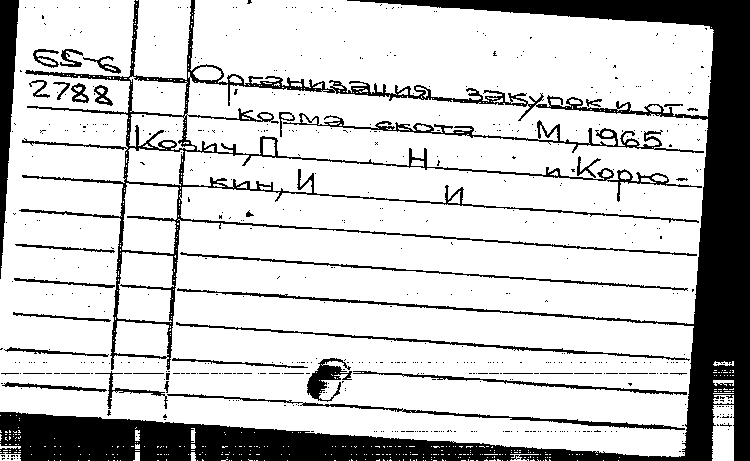 65-6 Организация закупок и от-
2788 корма скота М., 1965.
Козич, П Н. и Корю-
кин, И И